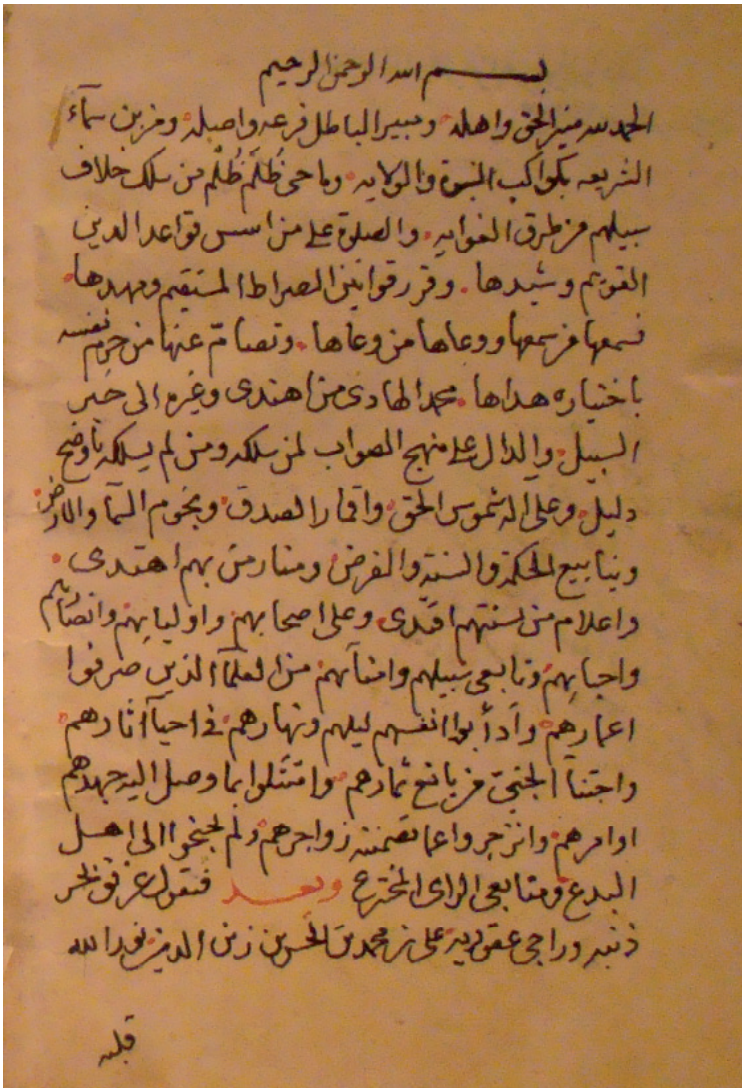 بسم الله الرحمن الرحيم
الحمد لله منير الحق واهله ومبير الباطل فرعه واصله ومزين سمآء
الشريعه بكواكب النبوة والولايه وماحى ظُلَم ظُلْم من سلك خلاف
سبيلهم من طرق الغوايه والصلوة على من اسس قواعد الدين
القويم وشيدها وقرر قوانين الصراط المستقيم ومهدها
فسمعها من سمعها ووعاها من وعاها وتصامّ عنها من حرم نفسه
باختياره هداها محمد الهادى من اهتدى وغيره الى خير
السبيل والدال على منهج الصواب لمن سلكه ومن لم يسلكه باوضح
دليل وعلى اله شموس الحق واقمار الصدق ونجوم السمآ والارض
وينابيع الحكمة والسنة والفرض ومنار من بهم اهتدى
واعلام من بسنتهم اقتدى وعلى اصحابهم واوليايهم وانصارهم
واحبابهم وتابعى سبيلهم وامنآئهم من العلمآ الذين صرفوا
اعمارهم وادأبوا انفسهم ليلهم ونهارهم فى احيآ اثارهم
واجتنآ الجنىّ من يانع ثمارهم وامتثلوا بما وصل اليه جهدهم
اوامرهم وانزجروا عما تضمنته زواجرهم ولم يجنحوا الى اهل
البدع ومتابعى الراى المخترع وبعد فيقول
ذنبه وراجى عفو ربه على بن محمد بن الحسن بن زين الدين نور الله
قلبه